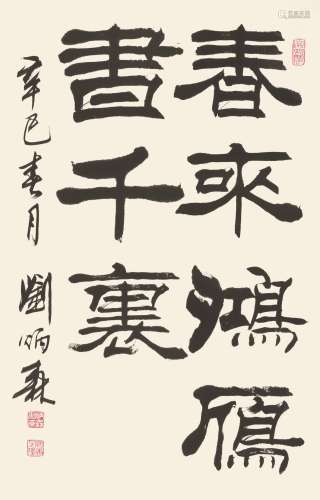 春来鴻鴈
書千裏
辛巳春月
劉炳森